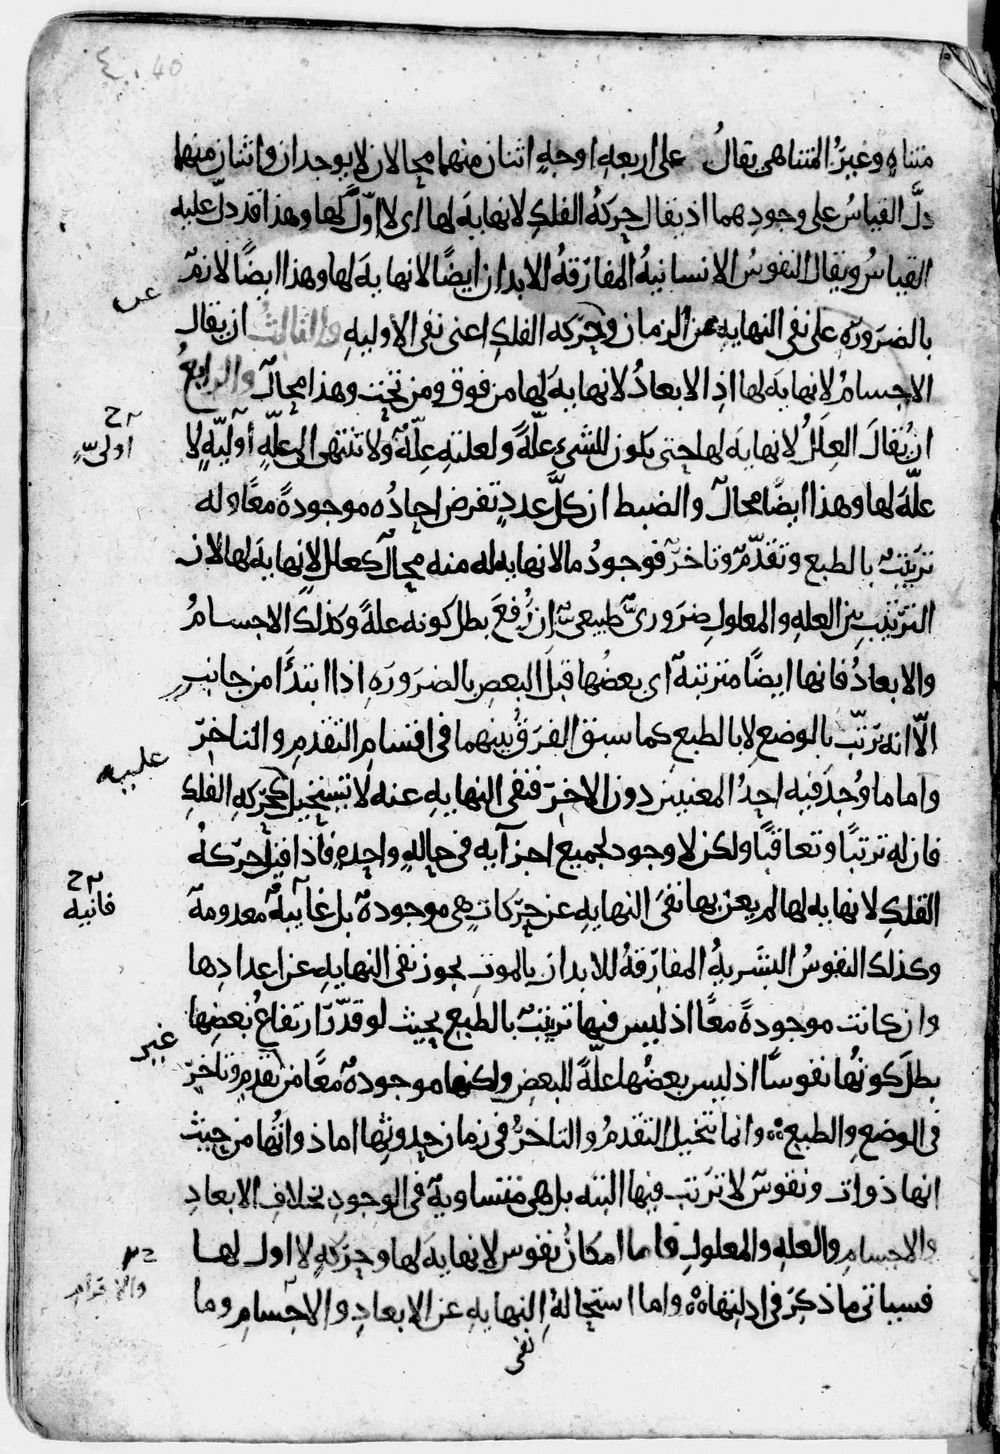 ٤٠ 40
متناهٍ وغيرُ المتناهى يقالُ على اربعهِ اوجهٍ اثنان منهما محالان لا يوجدان واثنان منهما
دلَّ القياسُ على وجودهما اذ يقال حركهُ الفلكِ لا نهايهَ لها اى لا اوّلَ لها وهذا قد دلّ عليه
القياسُ ويقال النفوسُ الانسانيهُ المفارقهُ للابدان ايضًا لا نهايهَ لها وهذا ايضًا لازمٌ
عن
بالضرورهِ على نفى النهايهِ عن الزمان وحركه الفلكِ اعنى نفى الأوليهِ والثالثُ ان يقال
الاجسامُ لا نهايهَ لها اذِ الابعادُ لا نهايهَ لها من فوق ومن تحت وهذا محالٌ والرابعُ
ان يُقالَ العِلَلُ لا نهايهَ لها حتى يكون للشىء علّةً ولعلتهِ علّةٌ ولا تنتهى الى علّةٍ أوليّةٍ لا
ح اولىّ
علّهَ لها وهذا ايضًا محالٌ والضبط ان كلَّ عددٍ تفرض احادُه موجودةً معًا وله
ترتيبٌ بالطبع وتقدّمٌ وتاخرٌ فوجودُ ما لا نهايه له منه محالٌ كعللٍ لا نهايهَ لها لان
الترتيب بين العلهِ والمعلولِ ضرورىٌ طبيعىٌ ان رُفعَ بطل كونه علةً وكذلك الاجسامُ
والابعادُ فانها ايضًا مترتبةٌ اى بعضُها قبلَ البعضِ بالضرورهِ اذا ابتدأ من جانبٍ
الّا انه ترتّب بالوضع لا بالطبع كما سبق الفرقُ بينهما فى اقسامِ التقدمِ والتاخرّ
واما ما وُجدَ فيه احدُ المعنيين دون الاخرّ فنفى النهايهِ عنه لا تستحيل كحركهِ الفلكِ
فان له ترتبًا وتعاقبًا ولكن لا وجود لجميع اجزآيه فى حالهٍ واحدهٍ فاذا قيل حركهُ
الفلكِ لا نهايه لها لم يعن بها نفىَ النهايهِ عن حركاتٍ هى موجودةٌ بل غآيبةٌ معدومةٌ
ح فانيه
وكذلك النفوسُ البشريهُ المفارقهُ للابدان بالموتِ يجوز نفى النهايهِ عن اعدادِها
وان كانت موجودةً معًا اذ ليس فيها ترتيبٌ بالطبع بحيث لو قدّر ارتفاعُ بعضِها
بطلَ كونُها نفوسًا اذ ليس بعضُها علّةً للبعضِ ولكنها موجودةٌ معًا من تقدمٍ وتاخرٍ
غير
فى الوضعِ والطبعِ وانما تخيل التقدمُ والتاخرُ فى زمان حدوثها اما ذواتُها من حيث
انها ذوات ونفوسٌ لا ترتيب فيها البته بل هى متساويةٌ فى الوجودِ بخلافِ الابعادِ
والاجسام والعلهِ والمعلولِ فاما امكانُ نفوسٍ لا نهايهَ لها وحركهٍ لا اول لها
فسياتى ما ذكر فى ادلتها واما استحالهُ النهايهِ عن الابعادِ والاجسامِ وما
نفى